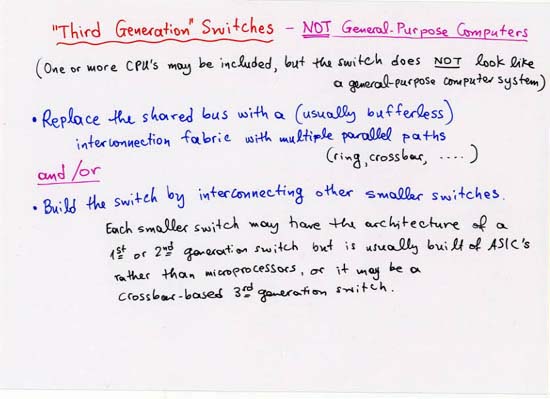 "Third Generation" Switches – NOT General-Purpose Computers
(One or more CPU's may be included, but the switch does NOT look like
a general-purpose computer system)
• Replace the shared bus with a (usually bufferless)
interconnection fabric with multiple parallel paths
(ring, crossbar, ....)
and/or
• Build the switch by interconnecting other smaller switches.
Each smaller switch may have the architecture of a
1st or 2nd generation switch but is usually built of ASIC's
rather than microprocessors, or it may be a
crossbar-based 3rd generation switch.